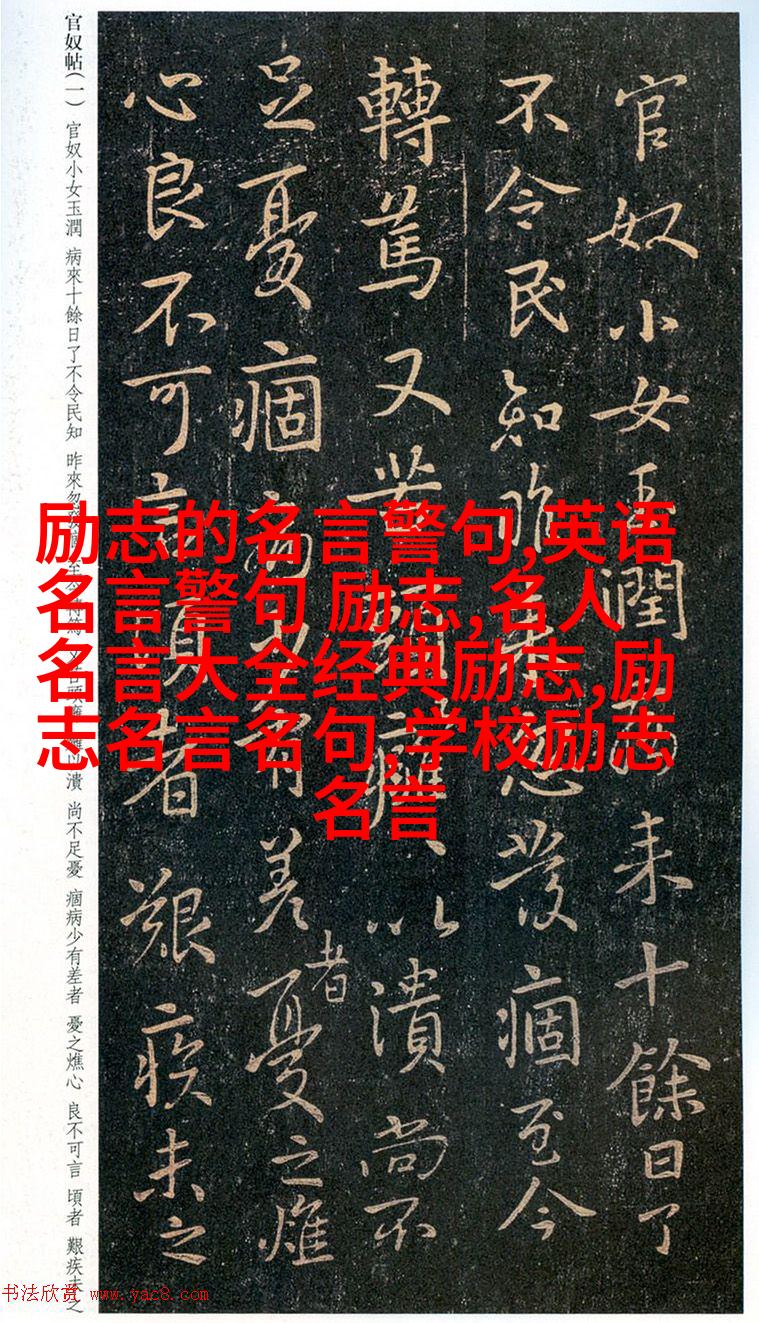 官奴小女玉潤病來十餘日了
不令民知昨來忽發痼至今
轉篤又苦頭癰、以潰尚不
足憂痼病少有差者憂之燋
心良不可言頃者艱疾未之
官奴帖(一) 官奴小女玉潤 病來十餘日了不令民知 昨來忽發痼至今轉篤 又苦頭癰癰以潰 尚不足憂 痼病少有差者 憂之燋心 良不可言 頃者 艱疾未之
励志的名言警句,英语
名言警句 励志,名人
名言大全经典励志,励
志名言名句,学校励志
名言
书法欣赏 www.yac8.com